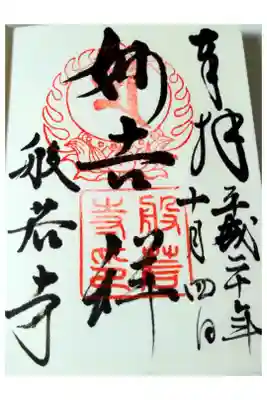 奉拝
平成二十年
十月四日
妙吉祥
般若寺
般若寺印